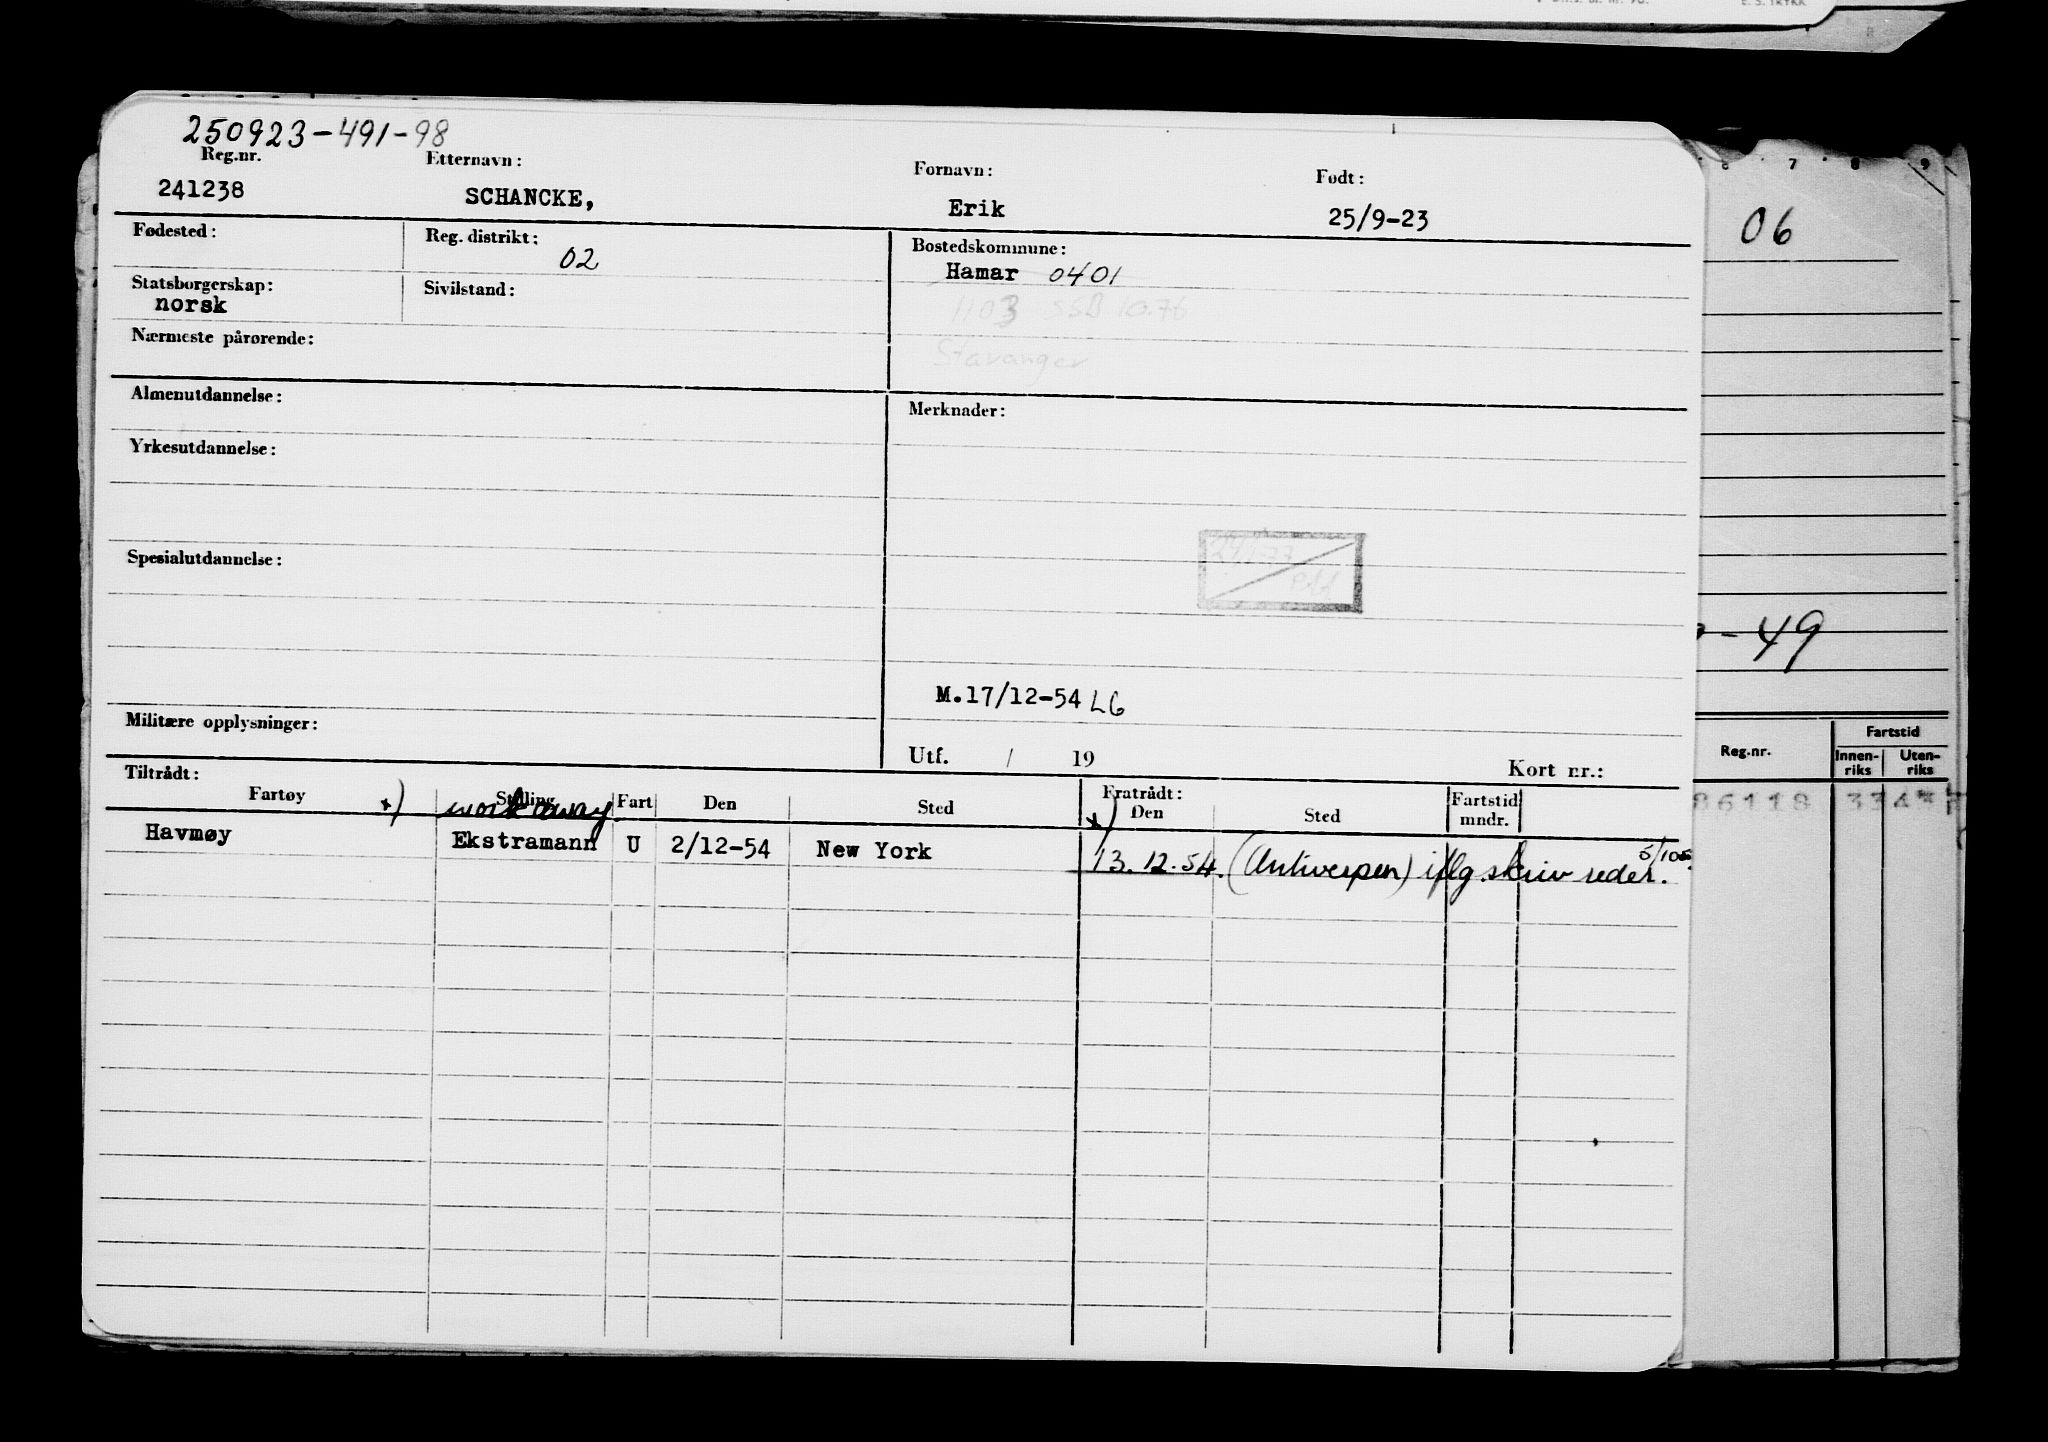 E. S. TRYKK
250923-491-98
Reg.nr. Etternavn: Fornavn: Født:
241238 SCHANCKE, Erik 25/9-23
Fødested: Reg. distrikt: 02 Bostedskommune:
Hamar 0401
Statsborgerskap: Sivilstand:
norsk
1103 SSB 10.76
Nærmeste pårørende:
Stavanger
Almenutdannelse: Merknader:
Yrkesutdannelse:
Spesialutdannelse:
M.17/12-54 LG
Militære opplysninger:
Utf. / 19 Kort nr.:
Tiltrådt: Fratrådt:
Fartøy x) Stilling Fart Den Sted x) Den Sted Fartstid mndr.
work away
Havmøy Ekstramann U 2/12-54 New York 13.12.54. (Antwerpen) iflg. skriv reder.
6 7 8 9
06
-49
Reg.nr. Fartstid
Innen-riks Uten-riks
86118 3343